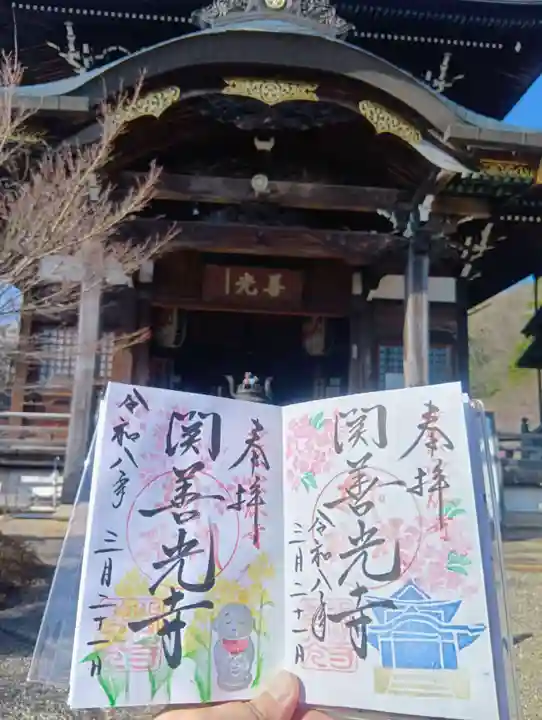 善光
奉拝
関善光寺
令和八年
三月二十一日
奉拝
関善光寺
令和八年
三月二十一日